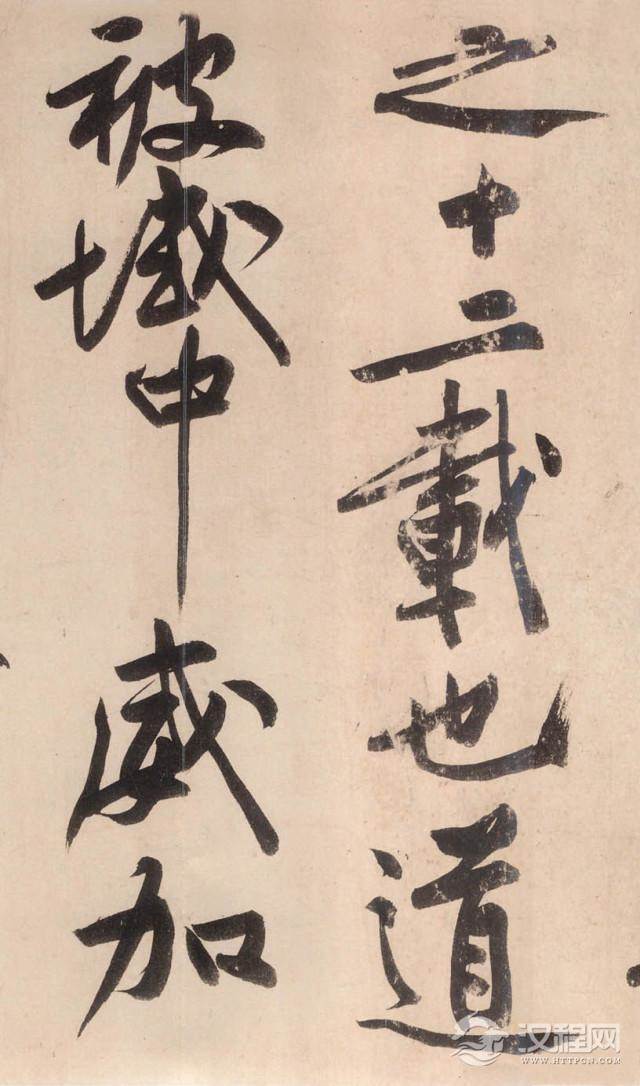 之十二載也道
被域中威加
汉程网
WWW.HTTPCN.COM